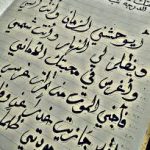 أيوحشني الزمان وأنت أنسي
ويظلم لي النهار وأنت شمسي
وأغرس في محبتك الأماني
فأجني الموت من ثمرات غرسي
جازيت غدرا عن
مودتي ظلما